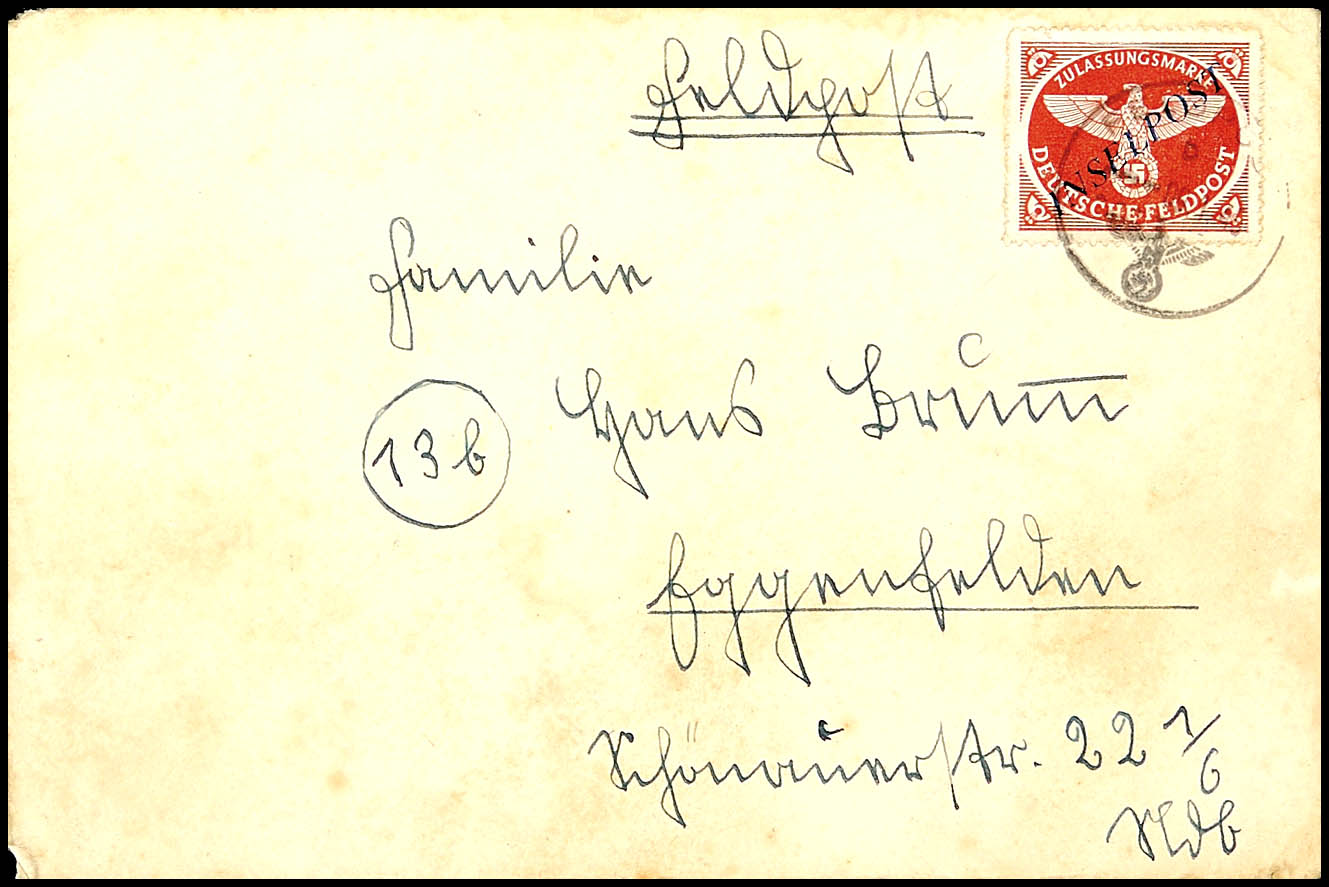 Feldpost
ZULASSUNGSMARKE
INSELPOST
DEUTSCHE FELDPOST
Familie
Hans Brum̅
13b
Eggenfelden
Schönauerstr. 22 1/6
Ndb